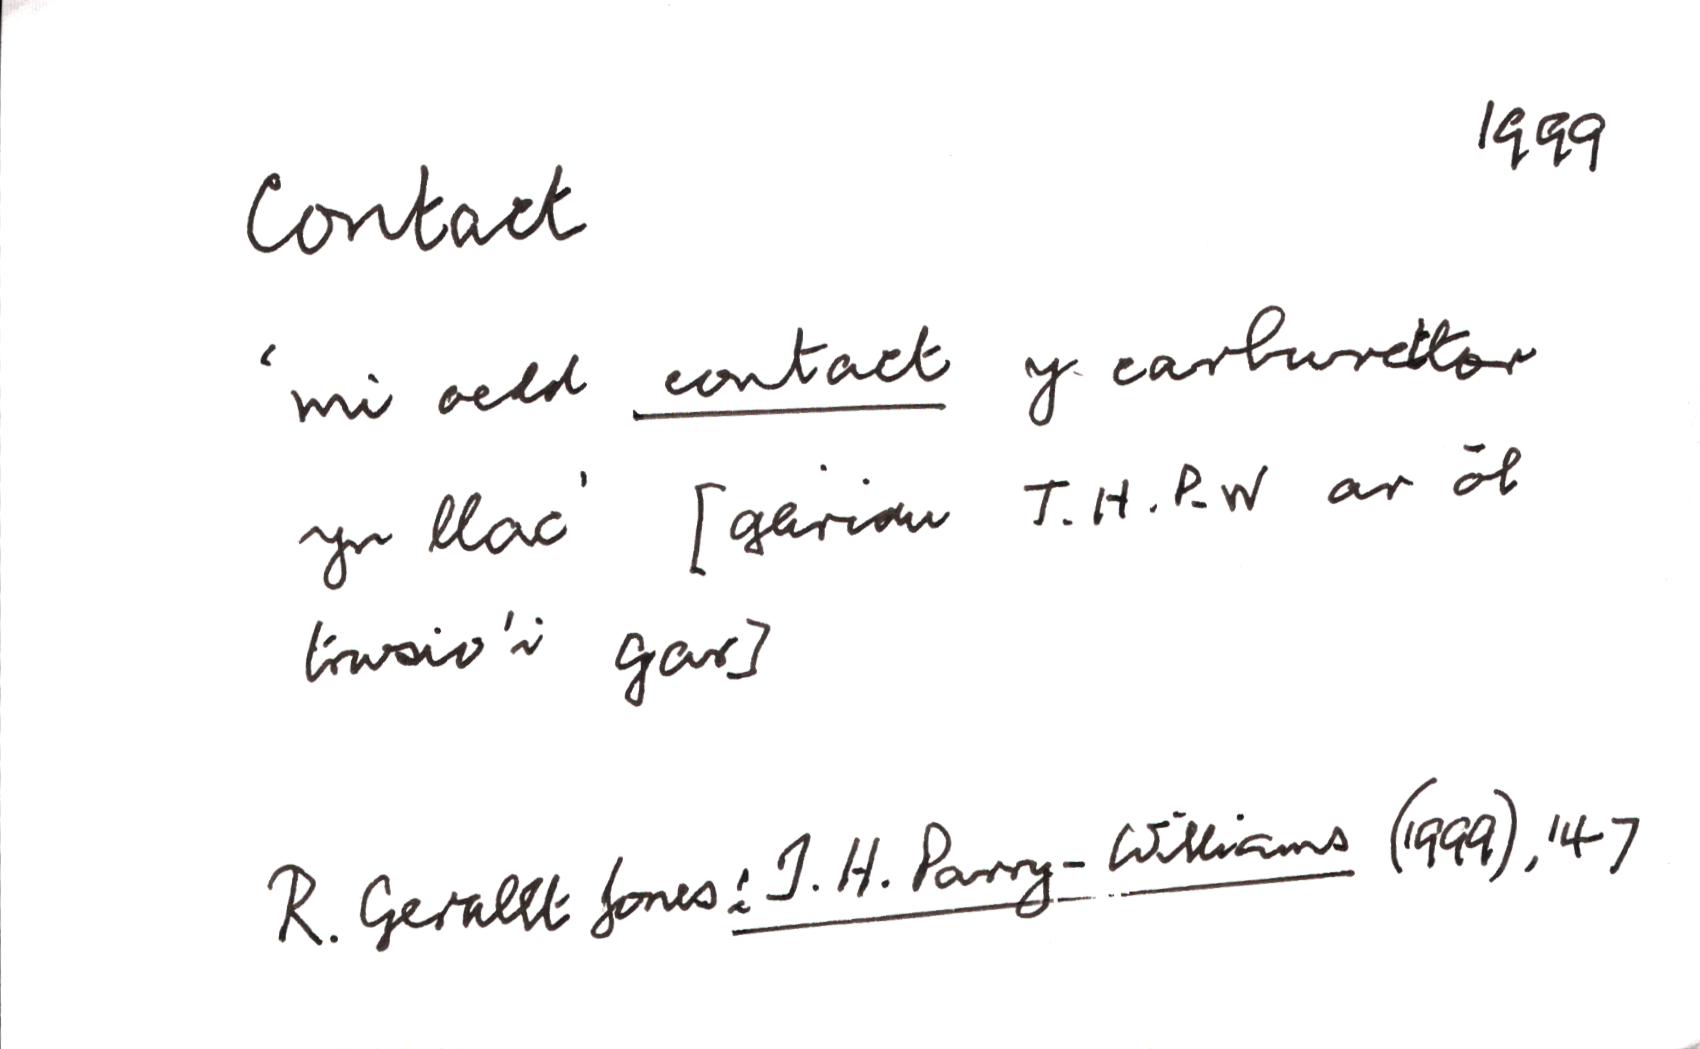 1999
Contact
'mi oedd contact y carburettor
yn llac' [geiriau T.H.P-W ar ôl
trwsio'i gar]
R. Gerallt Jones: T.H. Parry-Williams (1999), 147